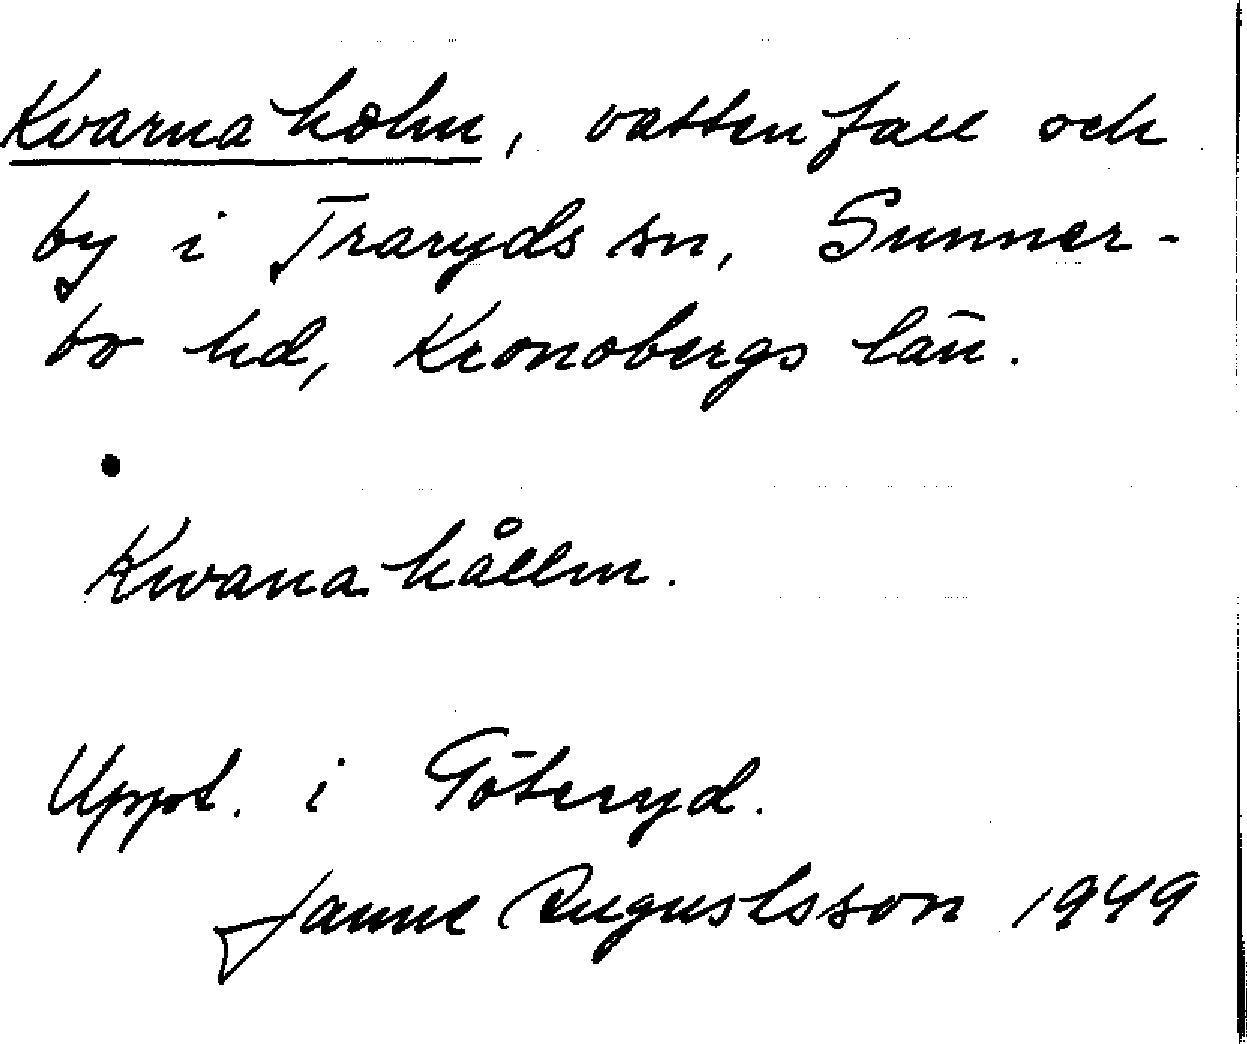 Kvarnaholm, vattenfall och
by i Traryds sn, Sunner-
bo hd, Kronobergs län.
Kwanahållm.
Uppt. i Göteryd.
Janne Augustsson 1949